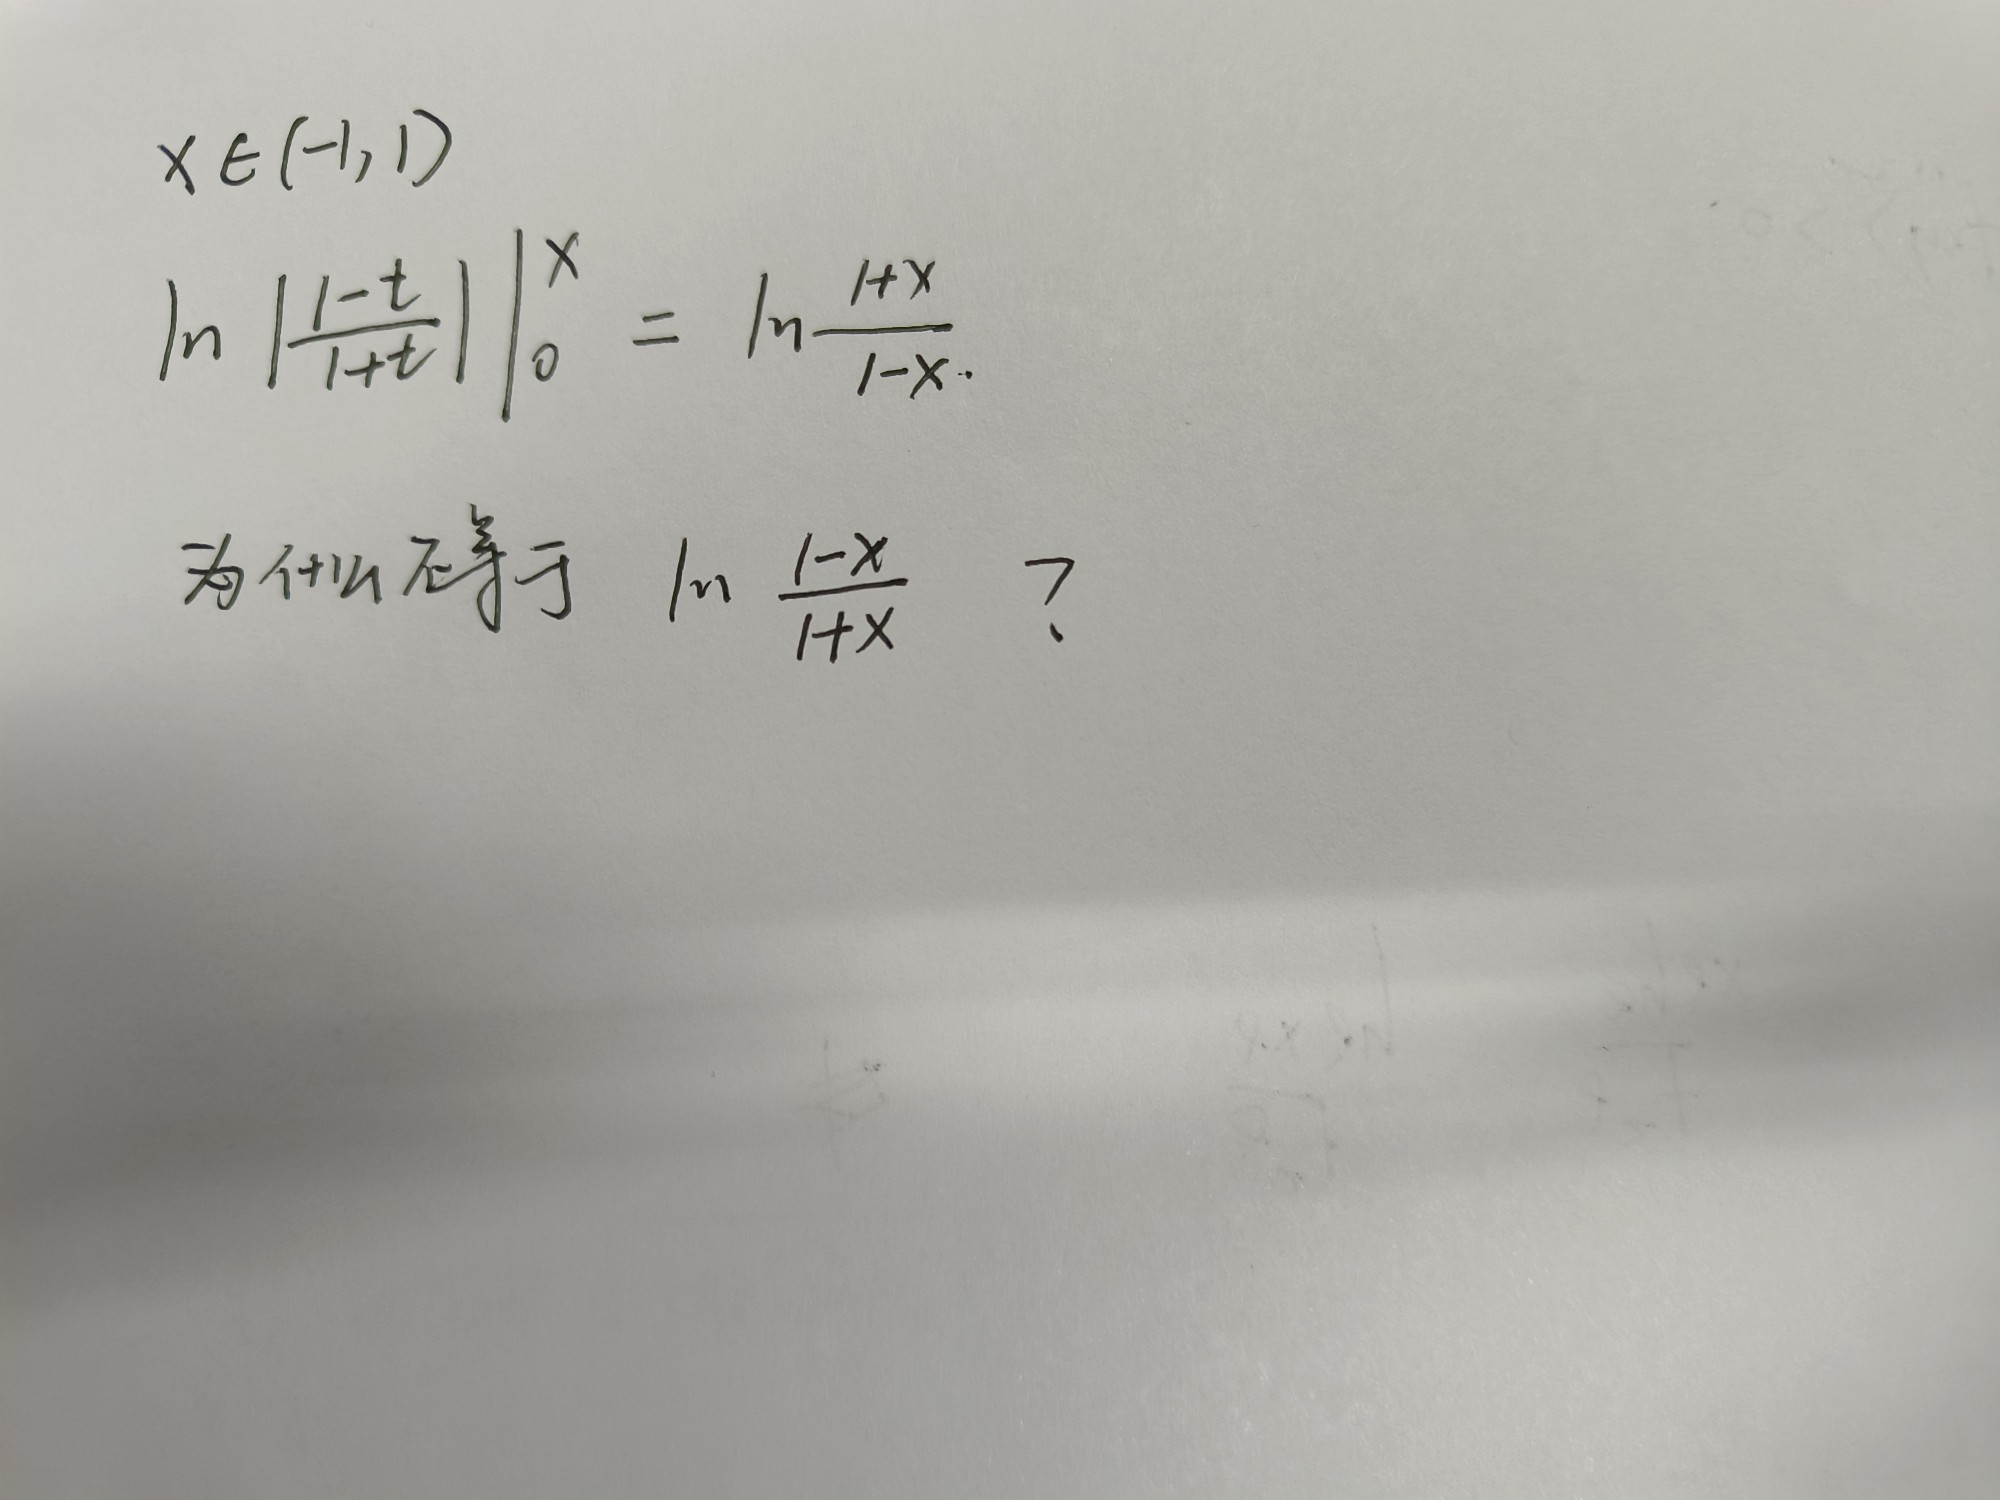 x∈(-1,1)
ln |(1-t)/(1+t)| |₀ˣ = ln (1+x)/(1-x).
为什么不等于 ln (1-x)/(1+x) ?